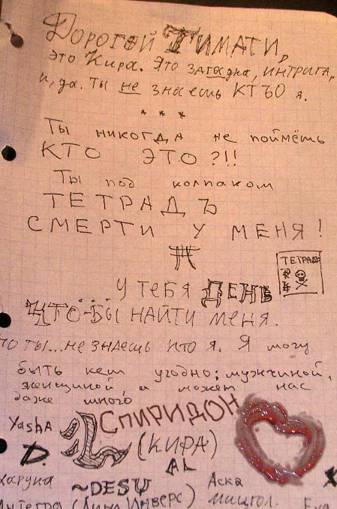 Дорогой Тимати,
это Кира. Это загадка, интрига,
и, да. Ты не знаешь КТЪО я.
* * *
Ты никогда не поймёшь
КТО ЭТО ?!!
Ты под колпаком
ТЕТРАДЪ
СМЕРТИ У МЕНЯ !
ТЕТРАДЬ
У тебя ДЕНЬ
ЧТО-БЫ НАЙТИ МЕНЯ.
но ты... не знаешь кто я. Я могу
быть кем угодно: мужчиной,
женщиной, и может нас
даже много
YashA
СПИРИДОН
(КИРА)
D.
AL
Харуна ~DESU Аска
Интегра (Лина Инверс)